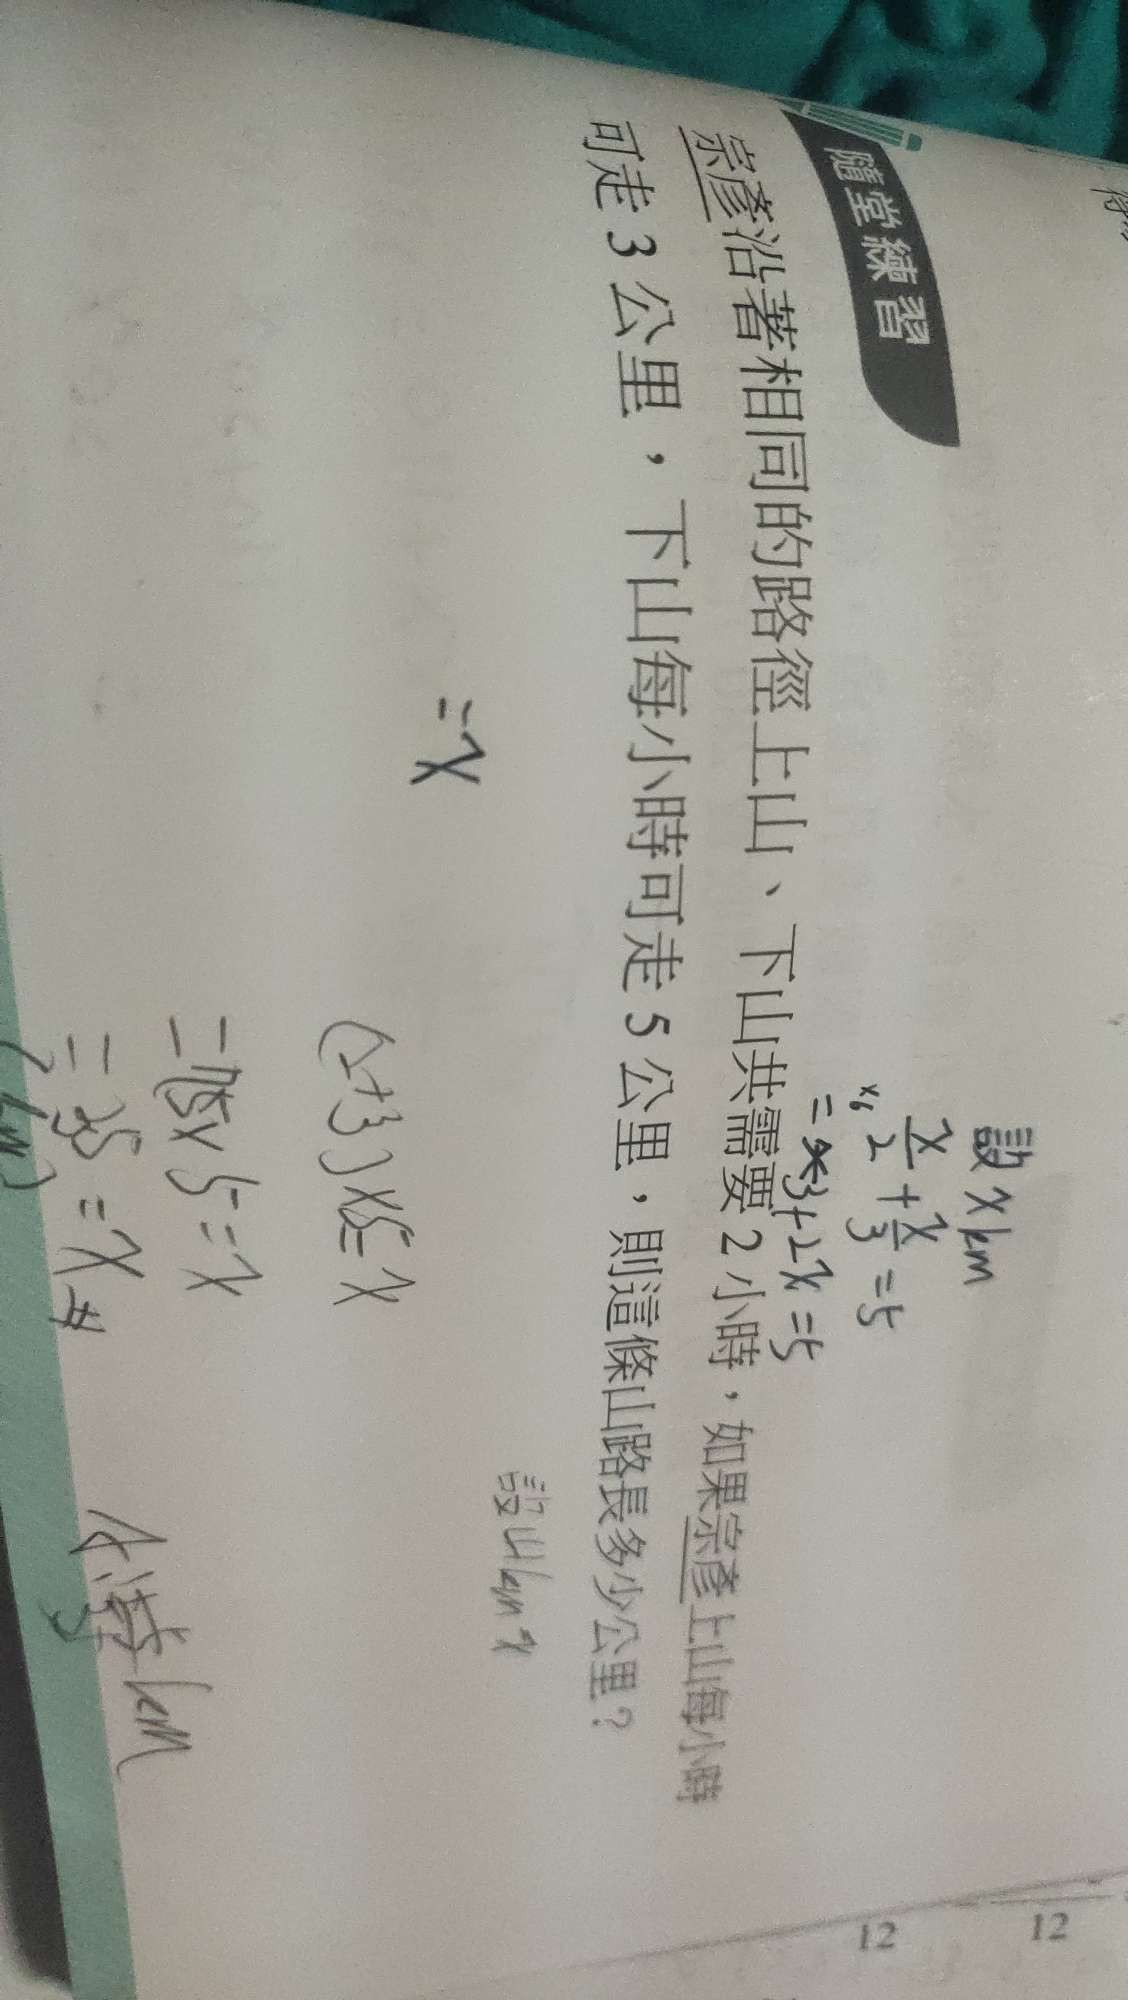 隨堂練習
設 x km
x/2 + x/3 = 5
×6
= 3+2x = 5
宗彥沿著相同的路徑上山、下山共需要 2 小時，如果宗彥上山每小時
可走 3 公里，下山每小時可走 5 公里，則這條山路長多少公里？
設山 km x
= x
(2+3)×5 = x
×5 = x
= 25 = x #
km
12
12